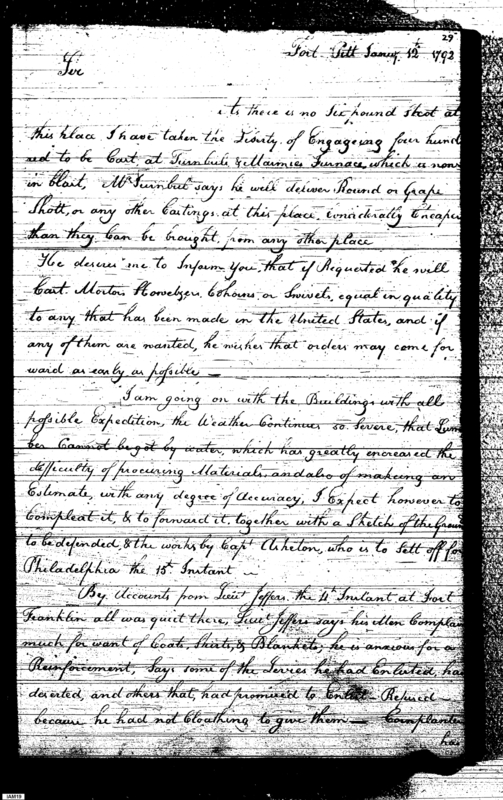 29
Fort Pitt Janry. 12th 1792
Sir
As there is no Six pound Shot at
this place I have taken the Liberty of Engageing four hund
red to be Cast at Turnbull & Marmies Furnace, which is now
in blast, Mr Turnbull says he will deliver Round or Grape
Shott, or any other Castings at this place, considerably Cheaper
than they Can be brought from any other place
He desires me to Inform You, that if Requested he will
Cast Mortors Howetzers, Cohorns or Swivels, equal in quality
to any that has been made in the United States, and if
any of them are wanted, he wishes that orders may come for
ward as early as possible —
I am going on with the Buildings with all
possible Expedition, the Weather Continues so Severe, that Lum
ber Cannot be got by water, which has greatly encreased the
difficulty of procuring Materials, and also of makeing an
Estimate, with any degree of Accuracy, I Expect however to
Compleat it, & to forward it, together with a Sketch of the Ground
to be defended, & the works, by Capt Asheton, who is to Sett off for
Philadelphia the 15th Instant —
By Accounts from Lieut Jeffers the 4th Instant at Fort
Franklin all was quiet there, Lieut Jeffers says his Men Complain
much for want of Coats, Shirts, & Blankets, he is anxious for a
Reinforcement, Says some of the Levies he had Enlisted, had
deserted, and others that had promised to Enlist — Refused —
because he had not Cloathing to give them — Cornplanter
has
IAM19